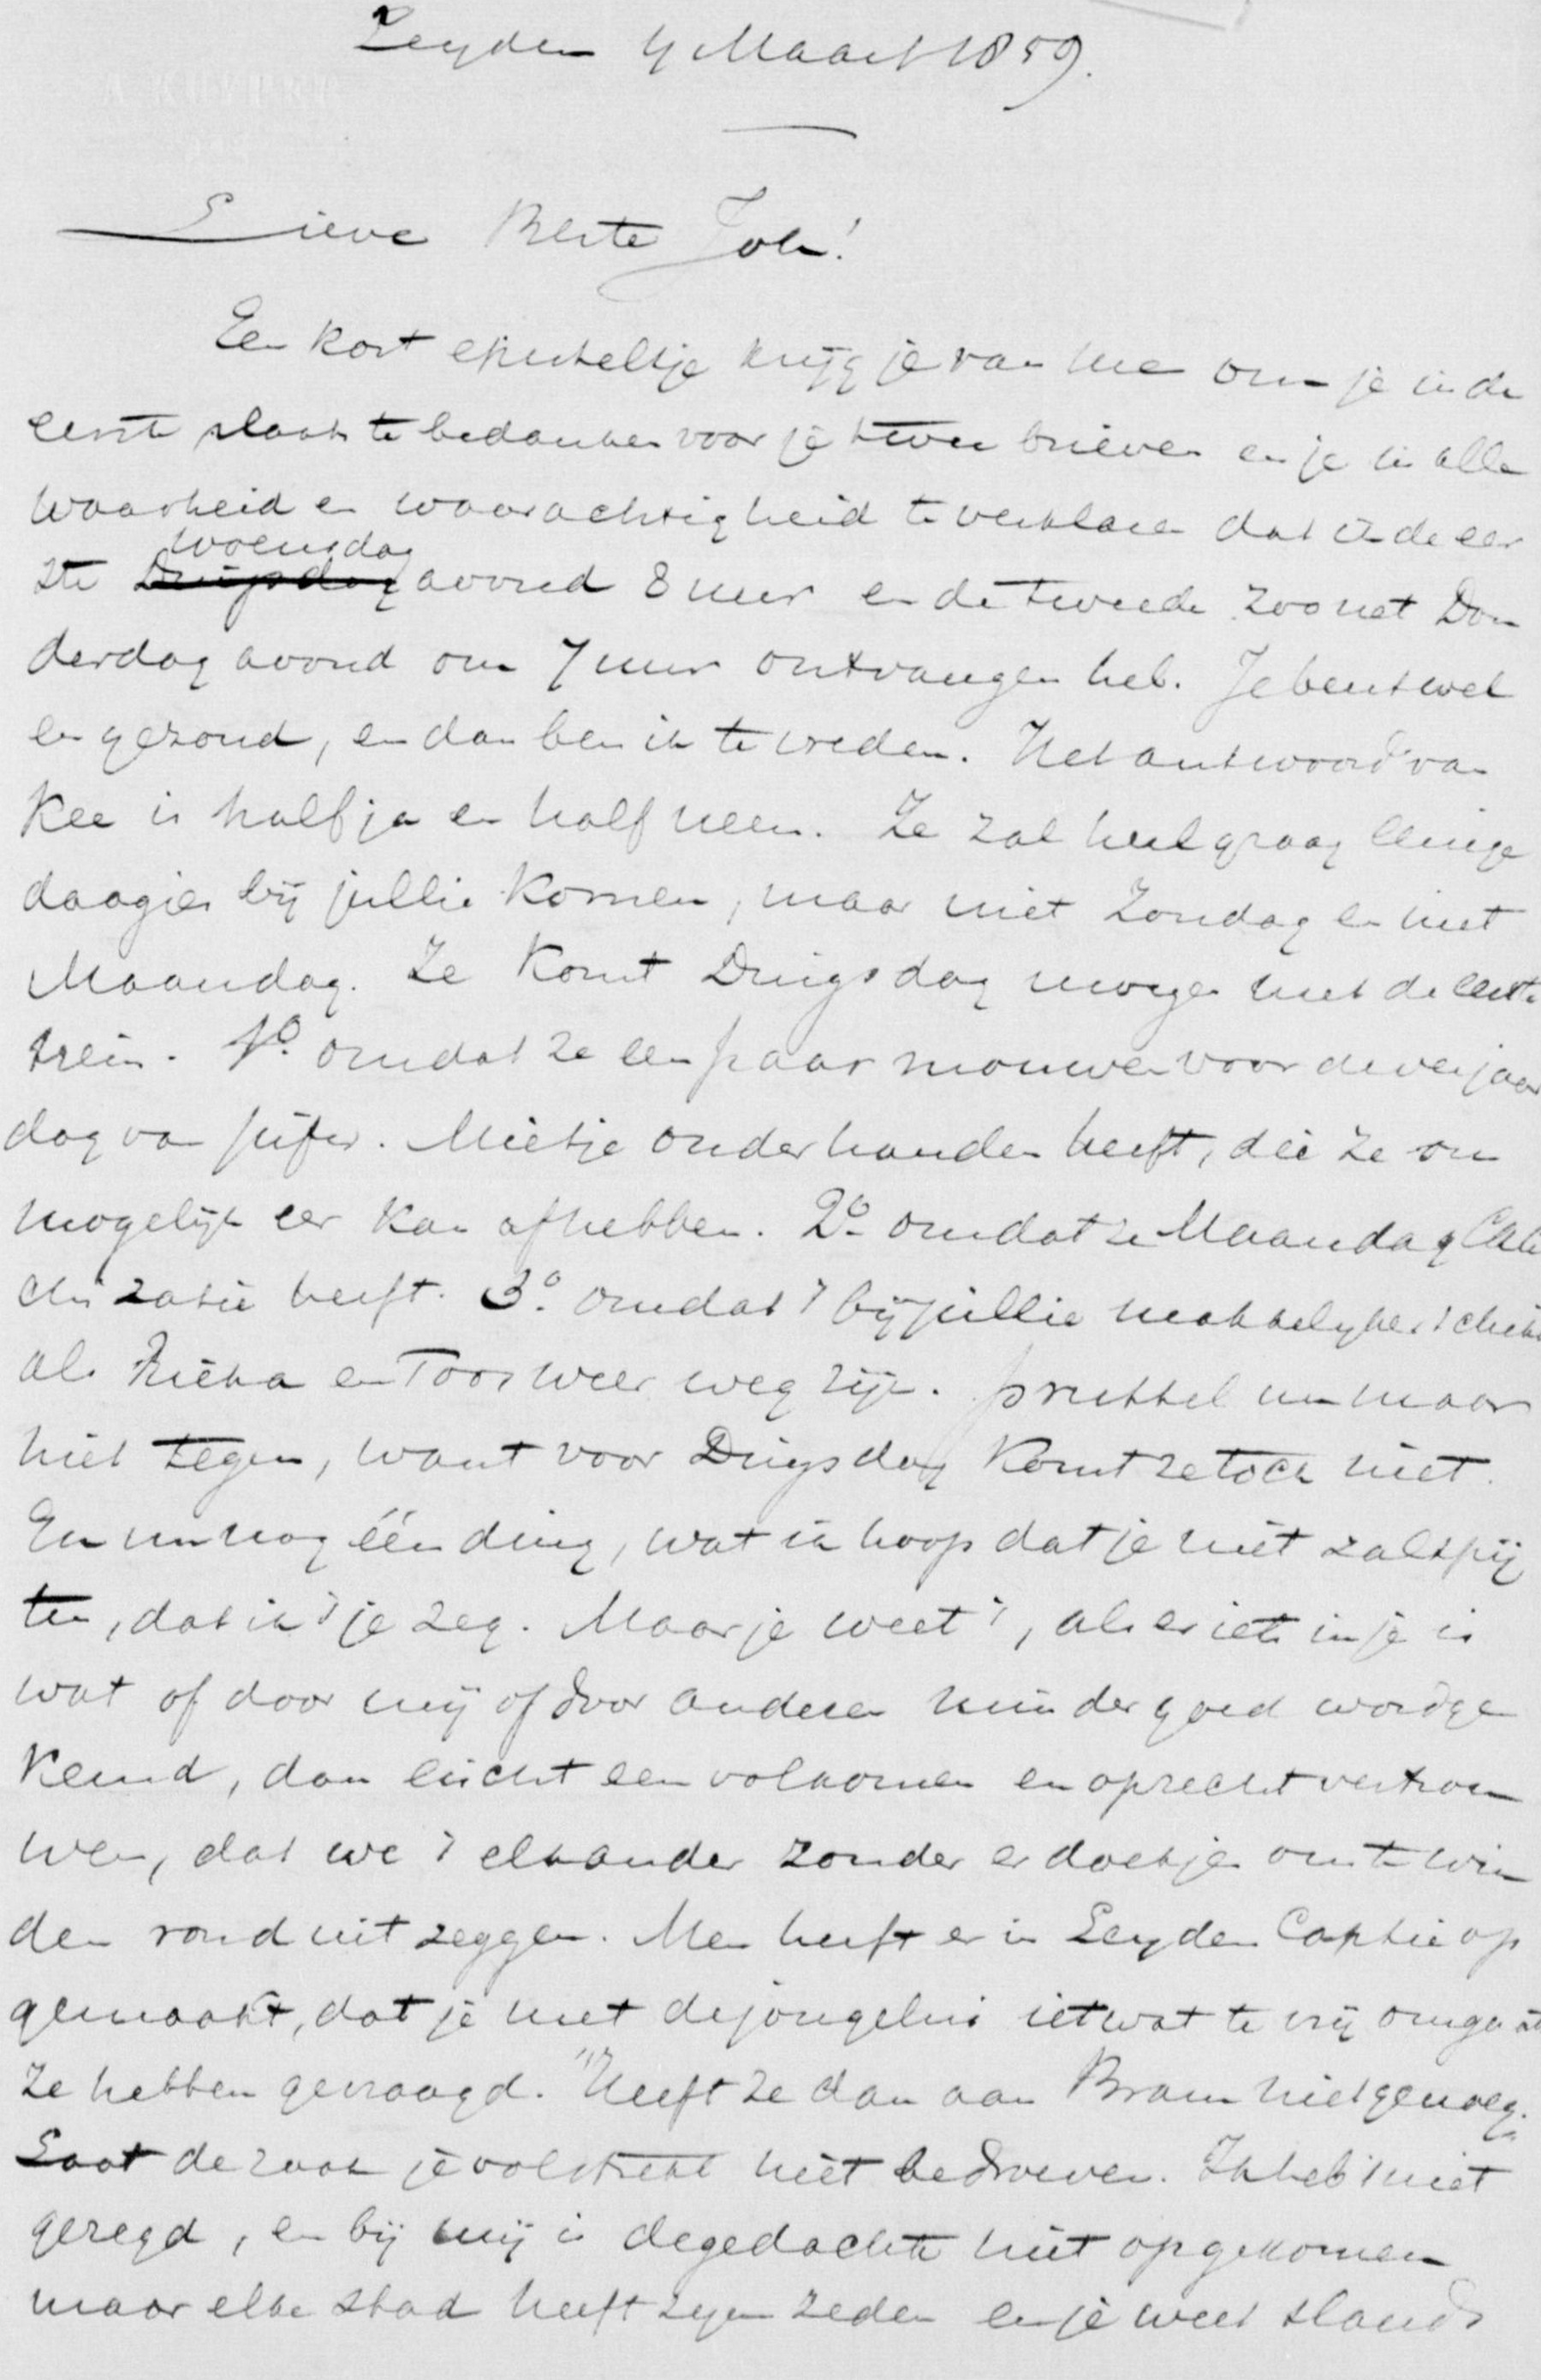 Leyden 4 Maart 1859.
Lieve Beste Joh!
Een kort episteltje krijg je van me om je in de
eerste plaats te bedanken voor je twee brieven en je in alle
waarheid en waarachtigheid te verklaren dat ik de eer
woensdag
ste Dingsdag avond 8 uur en de tweede zoo net Don
derdag avond om 7 uur ontvangen heb. Je bent wel
en gezond, en dan ben ik te vreden. Het antwoord van
Kee is half ja en half neen. Ze zal heel graag eenige
daagjes bij jullie komen, maar niet Zondag en niet
Maandag. Ze komt Dingsdag morgen met de eerste
trein. 1o. omdat ze een paar mouwen voor de verjaar
dag van jufvr. Mietje onderhanden heeft, die ze on
mogelijk eer kan afhebben. 2o omdat ze Maandag Cate
chizatie heeft. 3o. omdat 't bij jullie makkelyker schikt
als Rieka en Toos weer weg zijn. pruttel nu maar
niet tegen, want voor Dingsdag komt ze toch niet.
En nu nog één ding, wat ik hoop dat je niet zal spij
ten, dat ik 't je zeg. Maar je weet 't, als er iets in je is
wat of door mij of door anderen minder goed word ge
keurd, dan eischt een volkomen en oprecht vertrou
wen, dat we 't elkander zonder er doekjes om te win
den ronduit zeggen. Men heeft er in Leyden Captie op
gemaakt, dat je met de jongelui ietwat te vrij omgaat
ze hebben gevraagd. "Heeft ze dan aan Bram niet genoeg."
Laat de zaak je volstrekt niet bedroeven. Ik heb 't niet
gezegd, en bij mij is de gedachte niet opgekomen
maar elke stad heeft zyn zeden en je weet slands